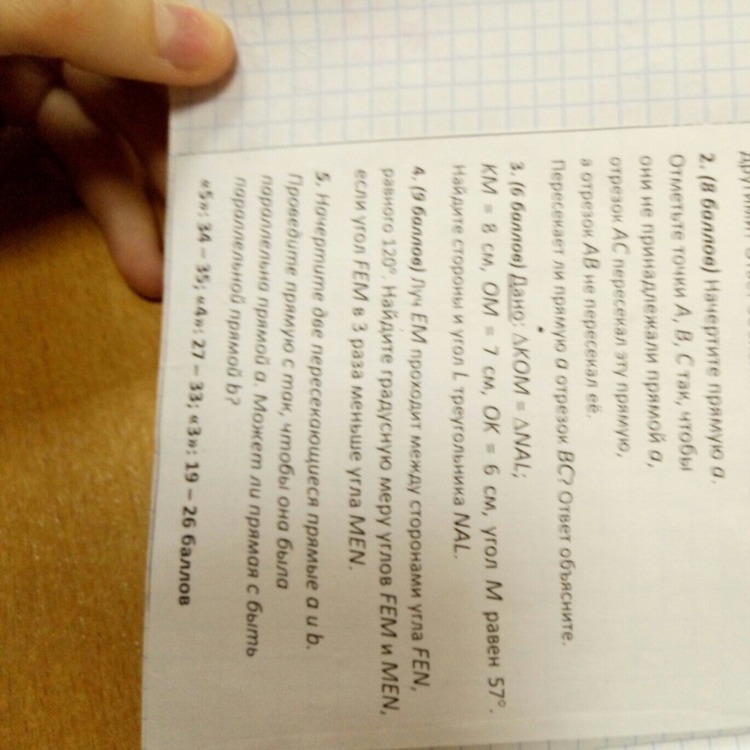 2. (8 баллов) Начертите прямую a.
Отметьте точки A, B, C так, чтобы
они не принадлежали прямой a,
отрезок AC пересекал эту прямую,
а отрезок AB не пересекал её.
Пересекает ли прямую a отрезок BC? Ответ объясните.
3. (6 баллов) Дано: ∆KOM = ∆NAL;
KM = 8 см, OM = 7 см, OK = 6 см, угол M равен 57°.
Найдите стороны и угол L треугольника NAL.
4. (9 баллов) Луч EM проходит между сторонами угла FEN,
равного 120°. Найдите градусную меру углов FEM и MEN,
если угол FEM в 3 раза меньше угла MEN.
5. Начертите две пересекающиеся прямые a и b.
Проведите прямую c так, чтобы она была
параллельна прямой a. Может ли прямая c быть
параллельной прямой b?
«5»: 34 – 35; «4»: 27 – 33; «3»: 19 – 26 баллов